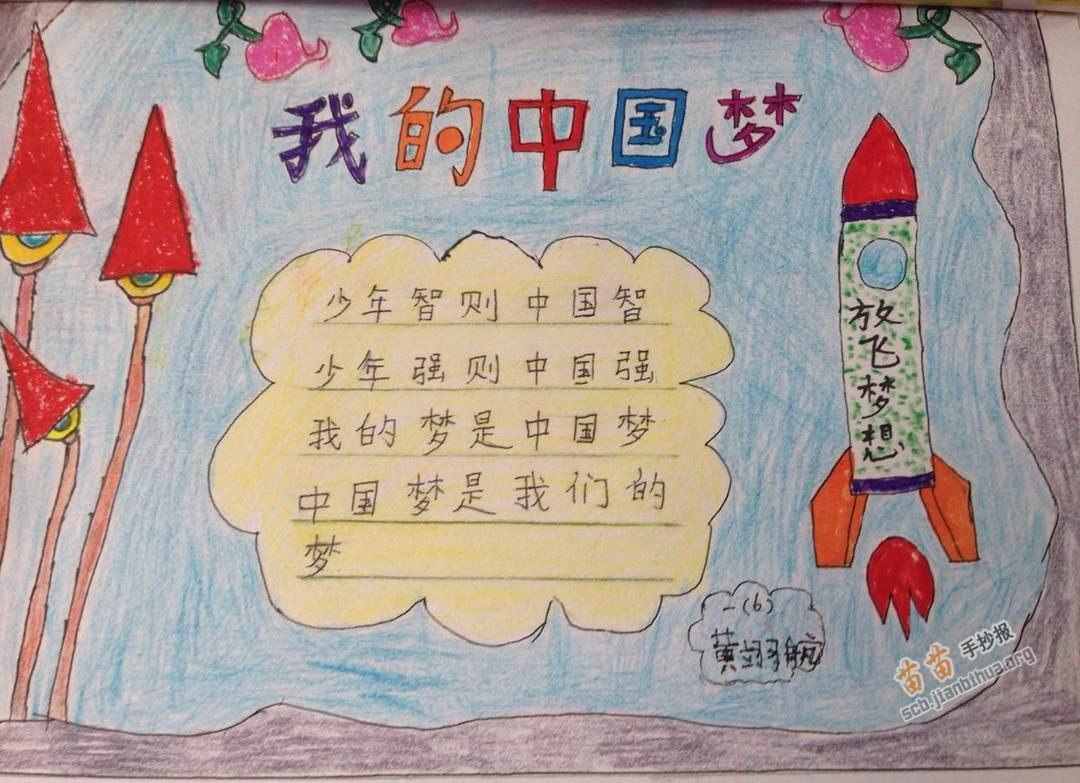 我的中国梦
少年智则中国智
少年强则中国强
我的梦是中国梦
中国梦是我们的
梦
放飞梦想
一(6)
黄翊航
苗苗手抄报
scb.jianbihua.org